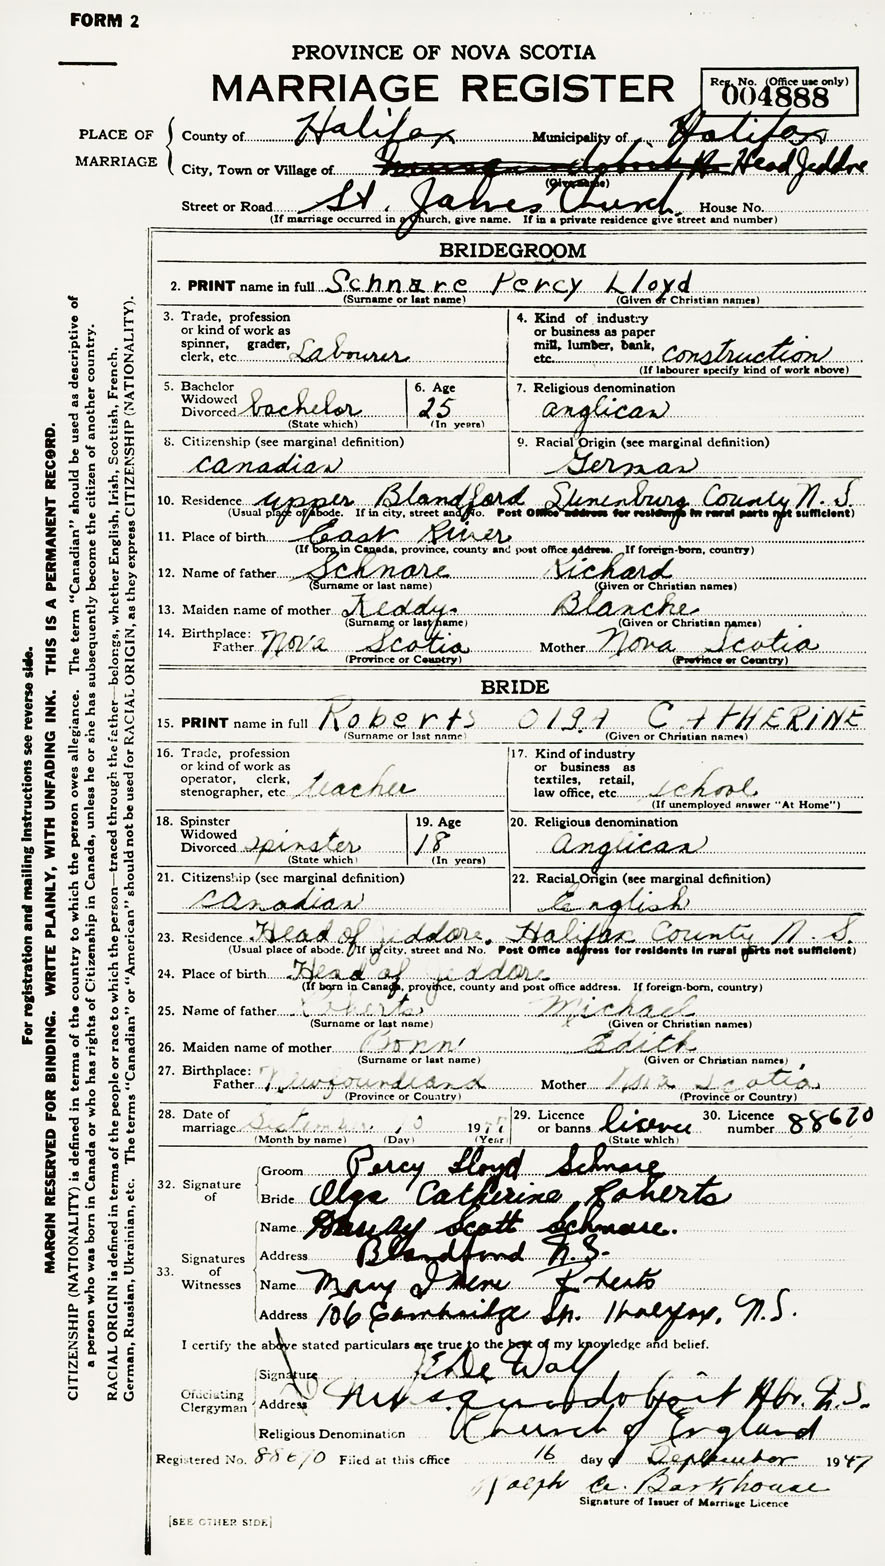 FORM 2
PROVINCE OF NOVA SCOTIA
MARRIAGE REGISTER
Reg. No. (Office use only)
004888
PLACE OF MARRIAGE
County of Halifax Municipality of Halifax
City, Town or Village of Head Jeddore
(Give name)
Street or Road St. James Church House No.
(If marriage occurred in a church, give name. If in a private residence give street and number)
BRIDEGROOM
2. PRINT name in full Schnare Percy Lloyd
(Surname or last name) (Given or Christian names)
3. Trade, profession or kind of work as spinner, grader, clerk, etc. Labourer
4. Kind of industry or business as paper mill, lumber, bank, etc. construction
(If labourer specify kind of work above)
5. Bachelor Widowed Divorced bachelor
(State which)
6. Age 25
(In years)
7. Religious denomination
anglican
8. Citizenship (see marginal definition)
canadian
9. Racial Origin (see marginal definition)
German
10. Residence Upper Blandford Lunenburg County N. S.
(Usual place of abode. If in city, street and No. Post Office address for residents in rural parts not sufficient)
11. Place of birth East River
(If born in Canada, province, county and post office address. If foreign-born, country)
12. Name of father Schnare Richard
(Surname or last name) (Given or Christian names)
13. Maiden name of mother Keddy Blanche
(Surname or last name) (Given or Christian names)
14. Birthplace: Father Nova Scotia Mother Nova Scotia
(Province or Country) (Province or Country)
BRIDE
15. PRINT name in full Roberts Olga CATHERINE
(Surname or last name) (Given or Christian names)
16. Trade, profession or kind of work as operator, clerk, stenographer, etc teacher
17. Kind of industry or business as textiles, retail, law office, etc. school
(If unemployed answer "At Home")
18. Spinster Widowed Divorced spinster
(State which)
19. Age 18
(In years)
20. Religious denomination
Anglican
21. Citizenship (see marginal definition)
canadian
22. Racial Origin (see marginal definition)
English
23. Residence Head of Jeddore, Halifax County N. S.
(Usual place of abode. If in city, street and No. Post Office address for residents in rural parts not sufficient)
24. Place of birth Head of Jeddore
(If born in Canada, province, county and post office address. If foreign-born, country)
25. Name of father Roberts Michael
(Surname or last name) (Given or Christian names)
26. Maiden name of mother Edith
(Surname or last name) (Given or Christian names)
27. Birthplace: Father Newfoundland Mother Nova Scotia
(Province or Country) (Province or Country)
28. Date of marriage September 10 19
(Month by name) (Day) (Year)
29. Licence or banns licence
(State which)
30. Licence number 88670
32. Signature of
Groom Percy Lloyd Schnare
Bride Olga Catherine Roberts
33. Signatures of Witnesses
Name Scott Schnare.
Address Blandford N.S.
Name Mary Irene Roberts
Address 106 Cambridge St. Halifax, N.S.
I certify the above stated particulars are true to the best of my knowledge and belief.
Officiating Clergyman
Signature E De Wolf
Address Musquodoboit Hbr. N.S.
Religious Denomination Church of England
Registered No. 88670 Filed at this office 16 day of September 1947
Ralph Barkhouse
Signature of Issuer of Marriage Licence
[SEE OTHER SIDE]
For registration and mailing instructions see reverse side.
MARGIN RESERVED FOR BINDING. WRITE PLAINLY, WITH UNFADING INK. THIS IS A PERMANENT RECORD.
CITIZENSHIP (NATIONALITY) is defined in terms of the country to which the person owes allegiance. The term "Canadian" should be used as descriptive of
a person who was born in Canada or who has rights of Citizenship in Canada, unless he or she has subsequently become the citizen of another country.
RACIAL ORIGIN is defined in terms of the people or race to which the person—traced through the father—belongs, whether English, Irish, Scottish, French,
German, Russian, Ukrainian, etc. The terms "Canadian" or "American" should not be used for RACIAL ORIGIN, as they express CITIZENSHIP (NATIONALITY).